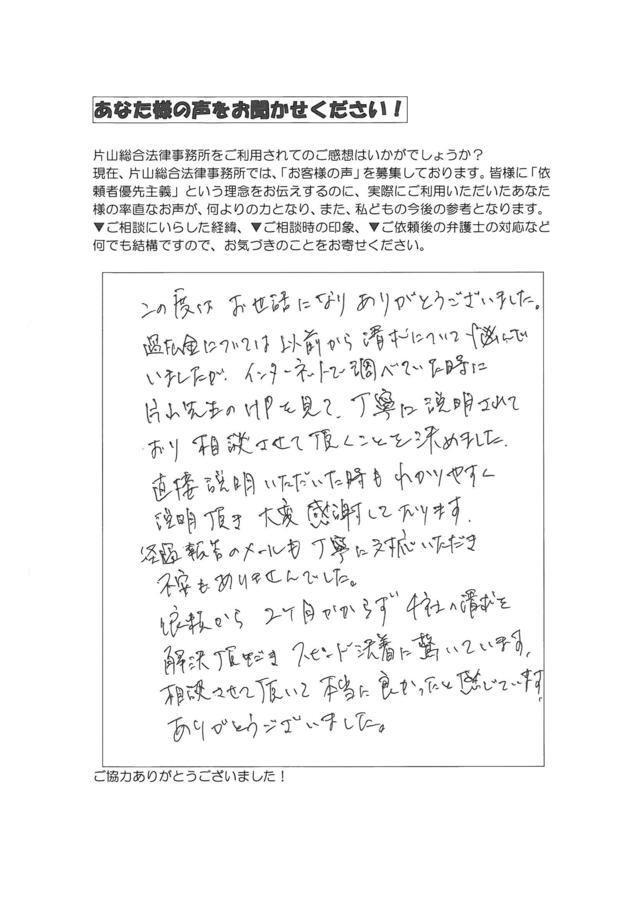 あなた様の声をお聞かせください！
片山総合法律事務所をご利用されてのご感想はいかがでしょうか？
現在、片山総合法律事務所では、「お客様の声」を募集しております。皆様に「依
頼者優先主義」という理念をお伝えするのに、実際にご利用いただいたあなた
様の率直なお声が、何よりの力となり、また、私どもの今後の参考となります。
▼ご相談にいらした経緯、▼ご相談時の印象、▼ご依頼後の弁護士の対応など
何でも結構ですので、お気づきのことをお寄せください。
この度は お世話になり ありがとうございました。
過払金については 以前から 請求について 悩んで
いましたが、インターネットで調べていた時に
片山先生のHPを見て、丁寧に説明されて
おり 相談させて頂くことを決めました。
直接説明いただいた時も わかりやすく
説明頂き 大変感謝しております。
経過報告のメールも丁寧に対応いただき
不安もありませんでした。
依頼から 2ヶ月かからず 4社の請求を
解決頂き スピード決着に驚いています。
相談させて頂いて 本当に良かったと感じています。
ありがとうございました。
ご協力ありがとうございました！